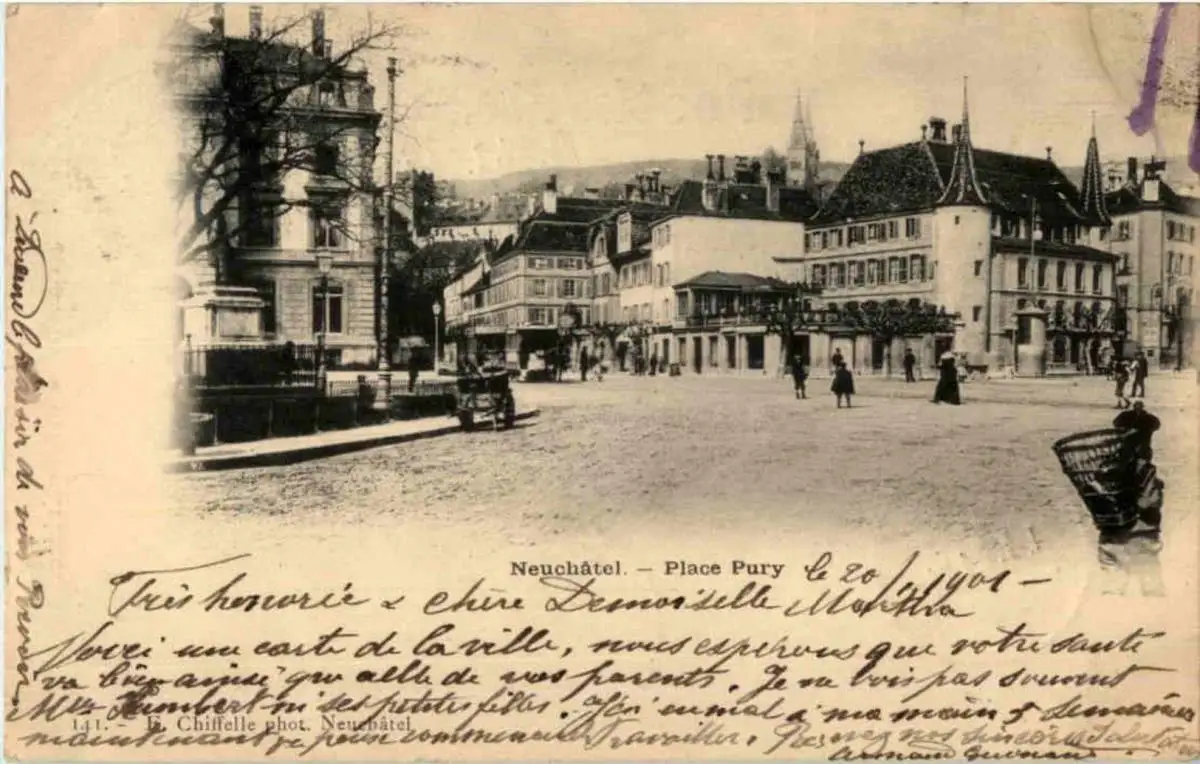 Neuchâtel. — Place Pury
le 20/ 1901 —
Très honorée & chère Demoiselle Martha
Voici une carte de la ville, nous espérons que votre santé
va bien ainsi que celle de vos parents. Je ne vois pas souvent
Mme Humbert ni ses petites filles. J'ai eu mal à ma main 5 semaines
maintenant je peux commencer travailler. Recevez nos sincères
Armand
141. E. Chiffelle phot. Neuchâtel